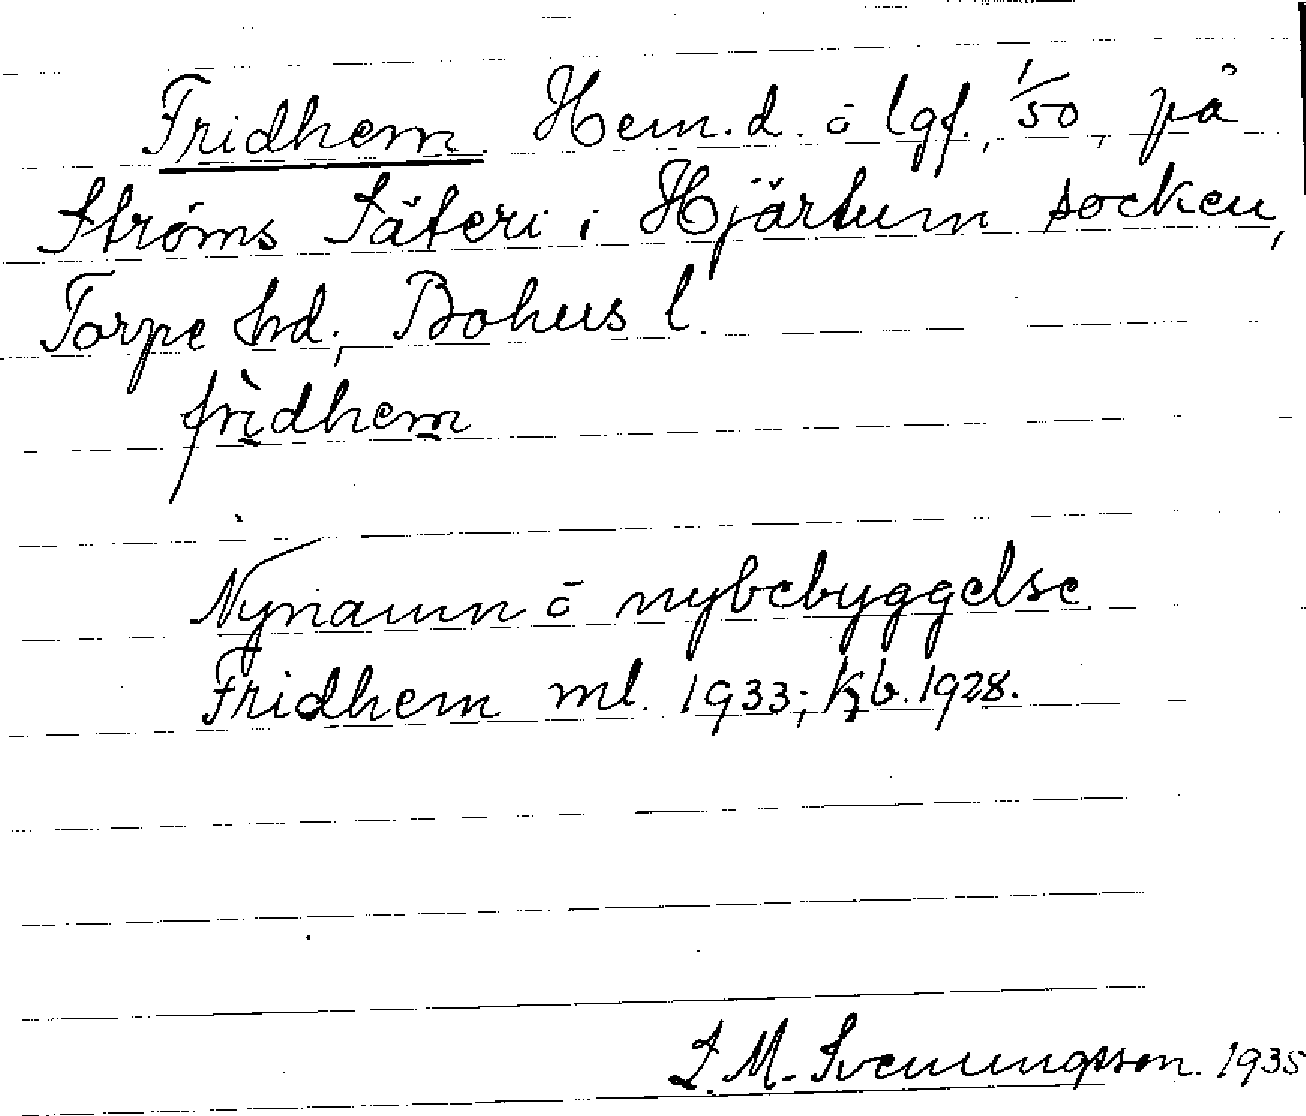 Fridhem Hem.d. å lgf., 1/50, på
Ströms Säteri i Hjärtum socken,
Torpe hd., Bohus l.
frìdhem
Nynamn å nybebyggelse
Fridhem ml. 1933; kb. 1928.
L. M. Svenungsson. 1935